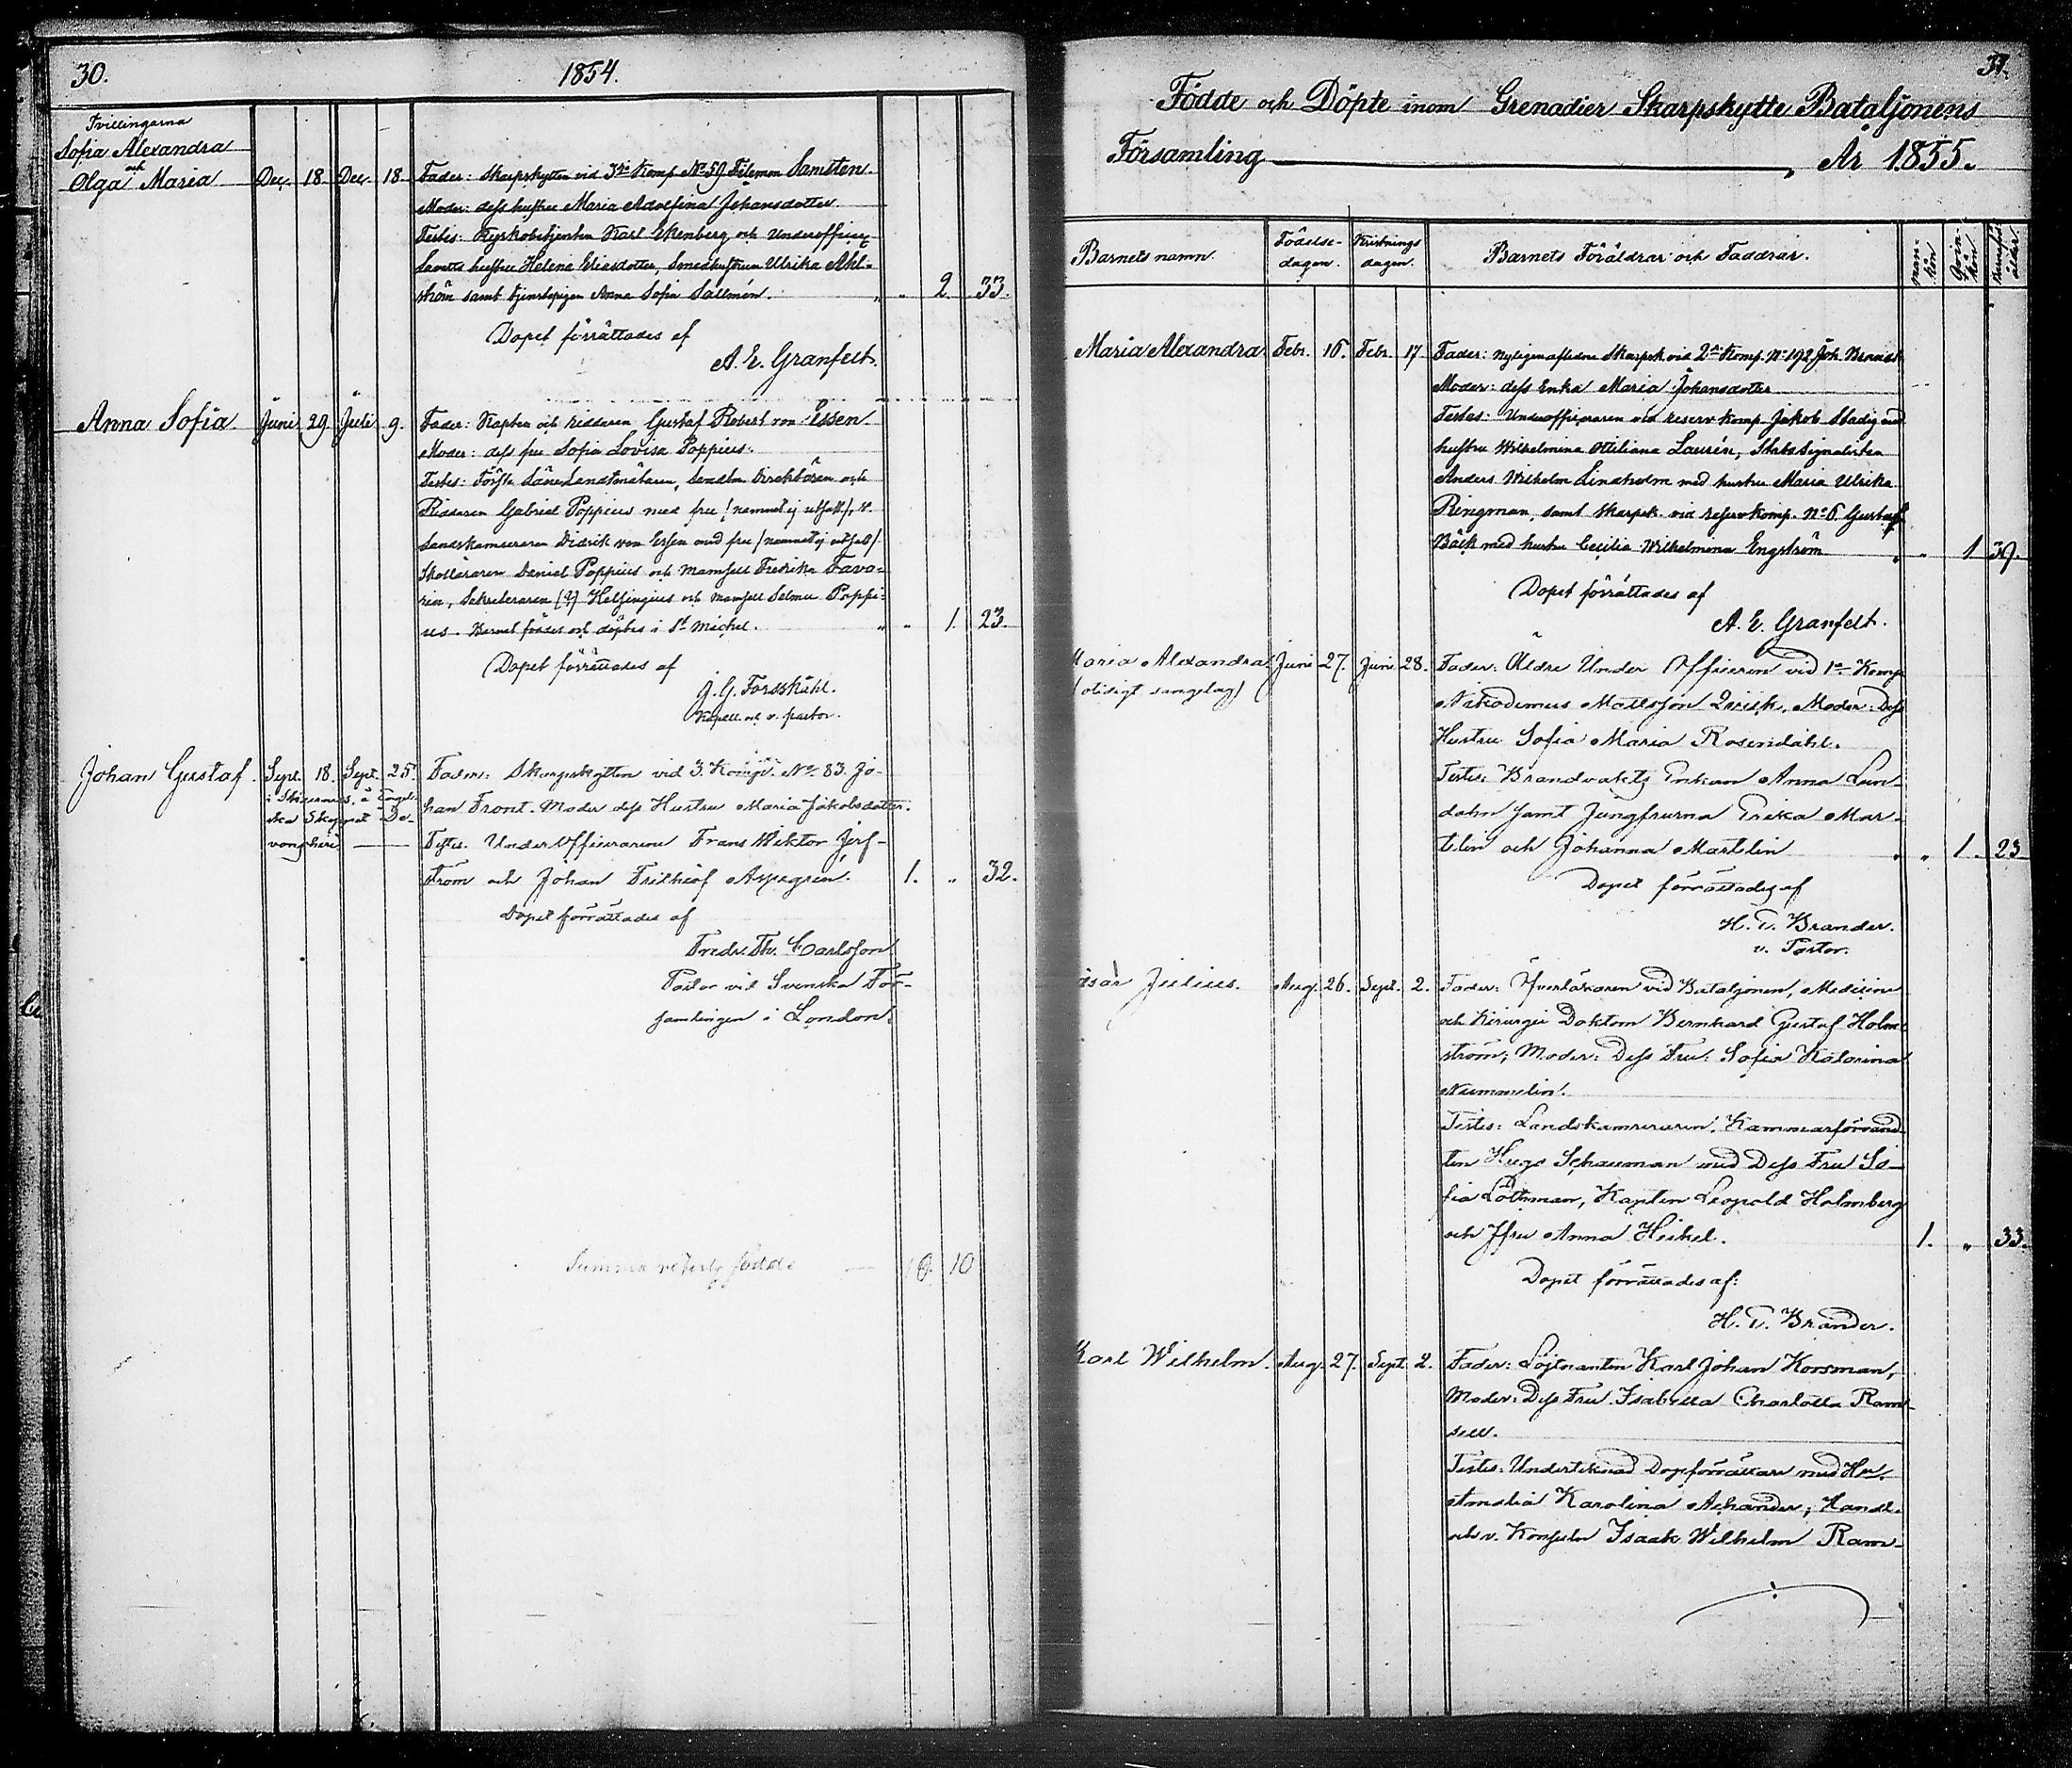 30.
1854.
Tvillingarna
Sofia Alexandra
och
Olga Maria Dec. 18. Dec. 18. Fader: Skarpskytten vid 3dje Komp. No 59 Filemon Samsten.
Moder: dess hustru Maria Adolfina Johansdotter
Testes: Kyrkobetjenten Karl Ekenberg och Underofficer
hustru Helena Eliasdotter, Smedhustrun Ulrika Ahl-
ström samt tjenstepigan Anna Sofia Sallmén. " " 2. 33.
Dopet förrättades af
A. E. Granfelt.
Anna Sofia Juni 29. Juli 9. Fader: Kapten och riddaren Gustaf Robert von Essen
Moder: dess fru Sofia Lovisa Poppius.
Testes: Förste Läne Landtmätaren, Direktören och
Riddaren Gabriel Poppius med fru /namnet ej utsatt/,
Landskamreraren Didrik von Essen med fru /namnet ej utsatt/
Skolläraren Daniel Poppius och Mamsell Fredrika Favo-
rin, Sekreteraren (?) Helsingius och Mamsell Selma Poppi-
us. Barnet föddes och döptes i St Michel. " " 1. 23.
Dopet förrättades af
J. G. Forsskåhl.
Kapell. och v. pastor.
Johan Gustaf. Sept. 18. Sept. 25. Fader: Skarpskytten vid 3. Komp. No 83. Jo-
i Sheerness, å Engel-
ska Skeppet De-
vonshire
han Front. Moder dess Hustru Maria Jakobsdotter.
Testes. UnderOfficerarene Frans Wiktor Jerf-
ström och Johan Frithiof Aspegren. 1. " 32.
Dopet förrättades af
Fredr. Th. Carlsson
Pastor vid Svenska För-
samlingen i London.
Summa födde 10

Födde och Döpte inom Grenadier Skarpskytte Bataljonens
Församling, År 1855.
Barnets namn. Födelse-dagen. Kristnings dagen. Barnets Föräldrar och Faddrar. man-kön Qvin-kön
Maria Alexandra Febr. 16. Febr. 17. Fader: nyligen aflidne Skarpsk. vid 2dra Komp. No 192 Joh. Brandt
Moder: dess Enka Maria Johansdotter
Testes: Underofficeraren vid reserv komp. Jakob Stadig med
hustru Wilhelmina Ottiliana Laurén, Stabs Signalisten
Anders Wilhelm Lindholm med hustru Maria Ulrika
Ringman, samt Skarpsk. vid reservkomp. No 6 Gustaf
Bäck med hustru Cecilia Wilhelmina Engström " " 1 39.
Dopet förrättades af
A. E. Granfelt.
Maria Alexandra Juni 27. Juni 28. Fader: Äldre Under Officeren vid 1a Komp
(olidigt sängelag)
Nikodemus Matsson Qvick, Moder: Dess
Hustru Sofia Maria Rosendahl.
Testes: Brandvakts Enkan Anna Lun-
dahn samt Jungfrurna Erika Mar-
telin och Johanna Martelin " " 1. 23
Dopet förrättades af
H. T. Brander.
v. Pastor.
Julius. Aug. 26. Sept. 2. Fader: Öfverläkaren vid Bataljonen, Medicine
och Kirurgie Doktorn Bernhard Gustaf Holm-
ström; Moder: Dess Fru: Sofia Katarina
Nummelin.
Testes: Landskamreraren, Kammarförvand-
ten Hugo Schauman med Dess Fru So-
fia Lothman, Kapten Leopold Holmberg
och Jfru Anna Heikel. 1. " 33.
Dopet förrättades af:
H. T. Brander.
Karl Wilhelm. Aug. 27. Sept. 2. Fader: Löjtnanten Karl Johan Korsman,
Moder: Dess Fru Isabella Charlotta Ram-
sell.
Testes: Undertecknad Dopförrättare med Hu.
Amalia Karolina Achander; Handl.
och v. Konsuln Isaak Wilhelm Ram-